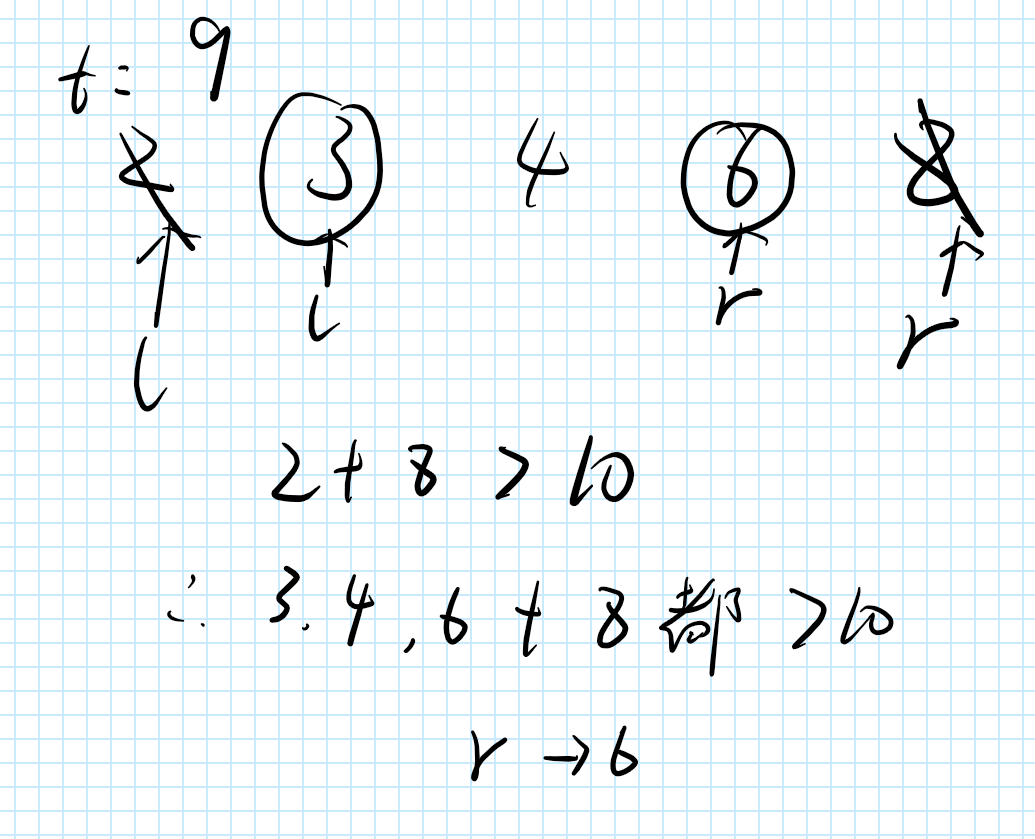 t: 9
2 3 4 6 8
l l r r
2 + 8 > 10
∴ 3.4,6 + 8 都 > 10
r → 6